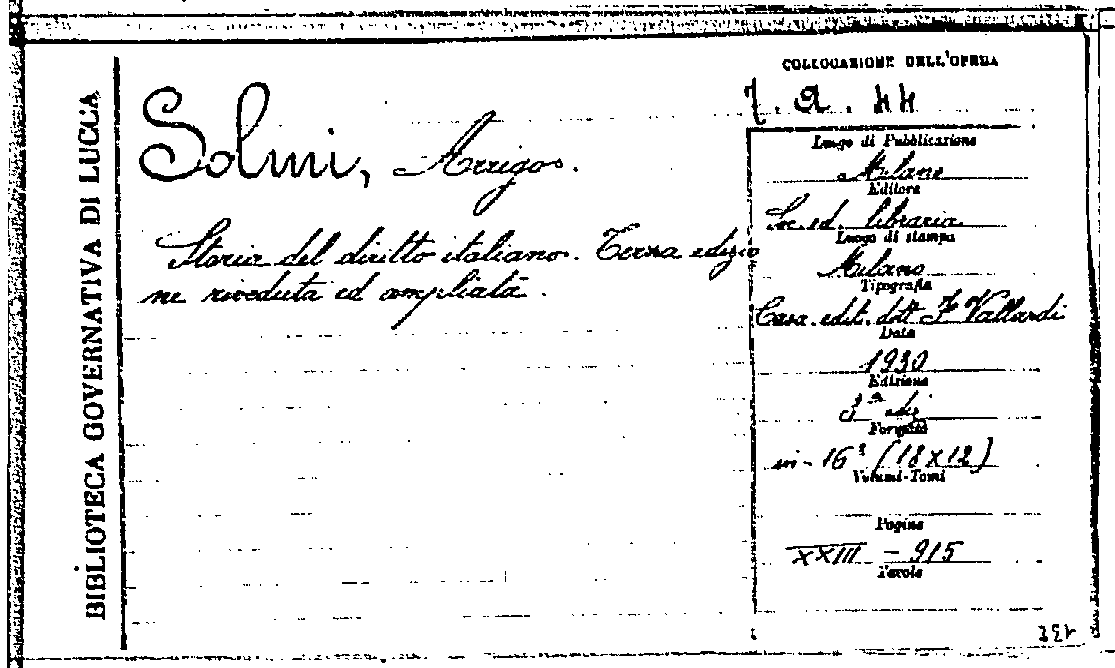 BIBLIOTECA GOVERNATIVA DI LUCCA
COLLOCAZIONE DELL'OPERA
Solmi, Arrigo.
Storia del diritto italiano. Terza edizio
ne riveduta ed ampliata.
Luogo di Pubblicazione
Milano
Editore
Soc. ed. libraria
Luogo di stampa
Milano
Tipografia
Casa edit. dott. F. Vallardi
Data
1930
Edizione
3ª ediz
Formato
in-16° (18x12)
Volumi-Tomi
Pagine
XXIII - 915
Tavole